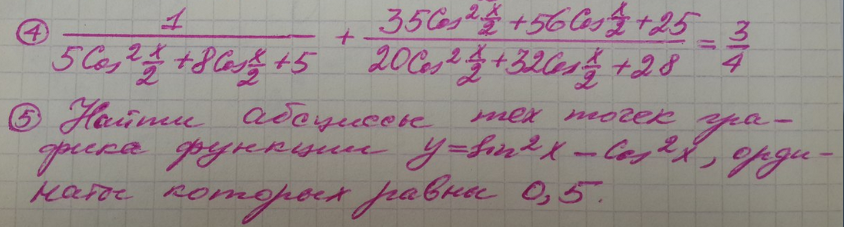 ④ 1/(5Cos²x/2 + 8Cosx/2 + 5) + (35Cos²x/2 + 56Cosx/2 + 25)/(20Cos²x/2 + 32Cosx/2 + 28) = 3/4
⑤ Найти абсциссы тех точек гра-
фика функции y = Sin²x – Cos²x, орди-
наты которых равны 0,5.